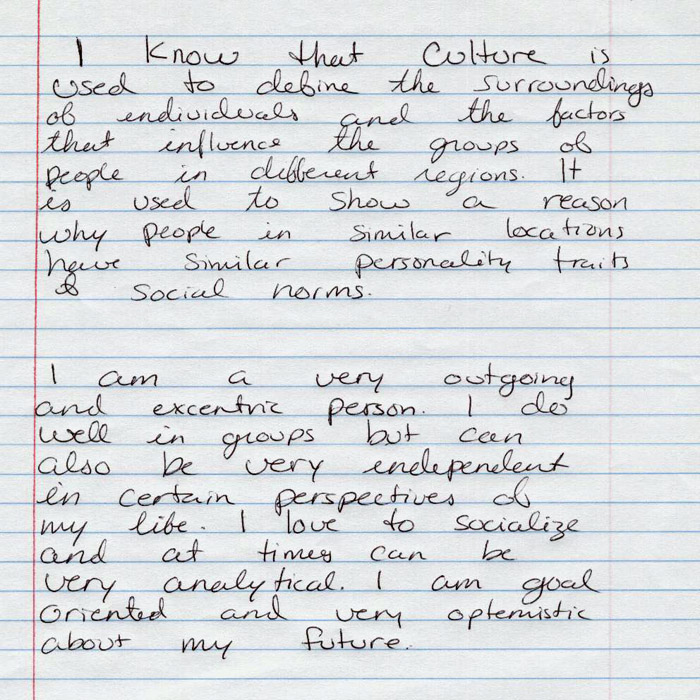 I know that Culture is
used to define the surroundings
of individuals and the factors
that influence the groups of
people in different regions. It
is used to show a reason
why people in similar locations
have similar personality traits
& social norms.
I am a very outgoing
and excentric person. I do
well in groups but can
also be very endependent
in certain perspectives of
my life. I love to socialize
and at times can be
very analytical. I am goal
oriented and very optemistic
about my future.